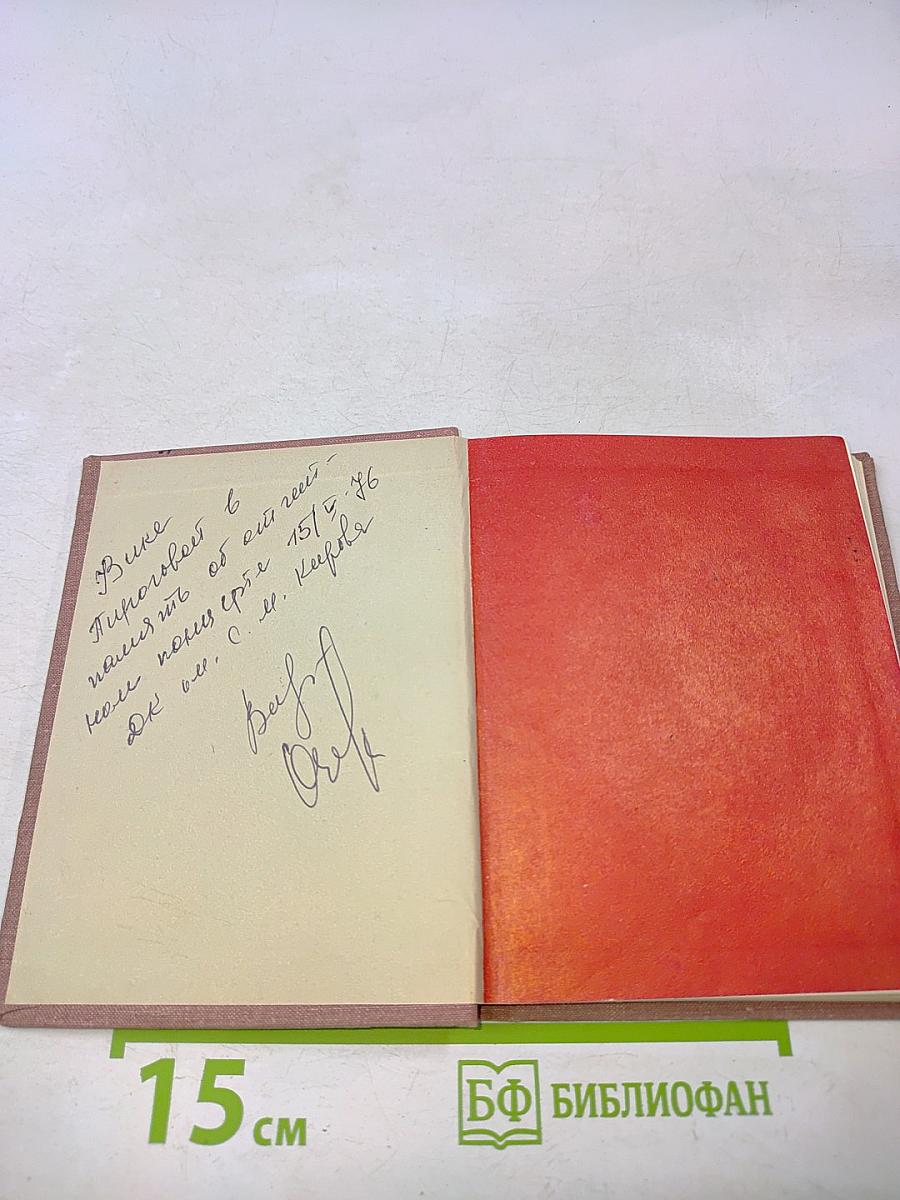 Вике
Пироговой в
память об отчёт-
ном концерте 15/V-76
ДК им. С. М. Кирова
15 см
БФ БИБЛИОФАН